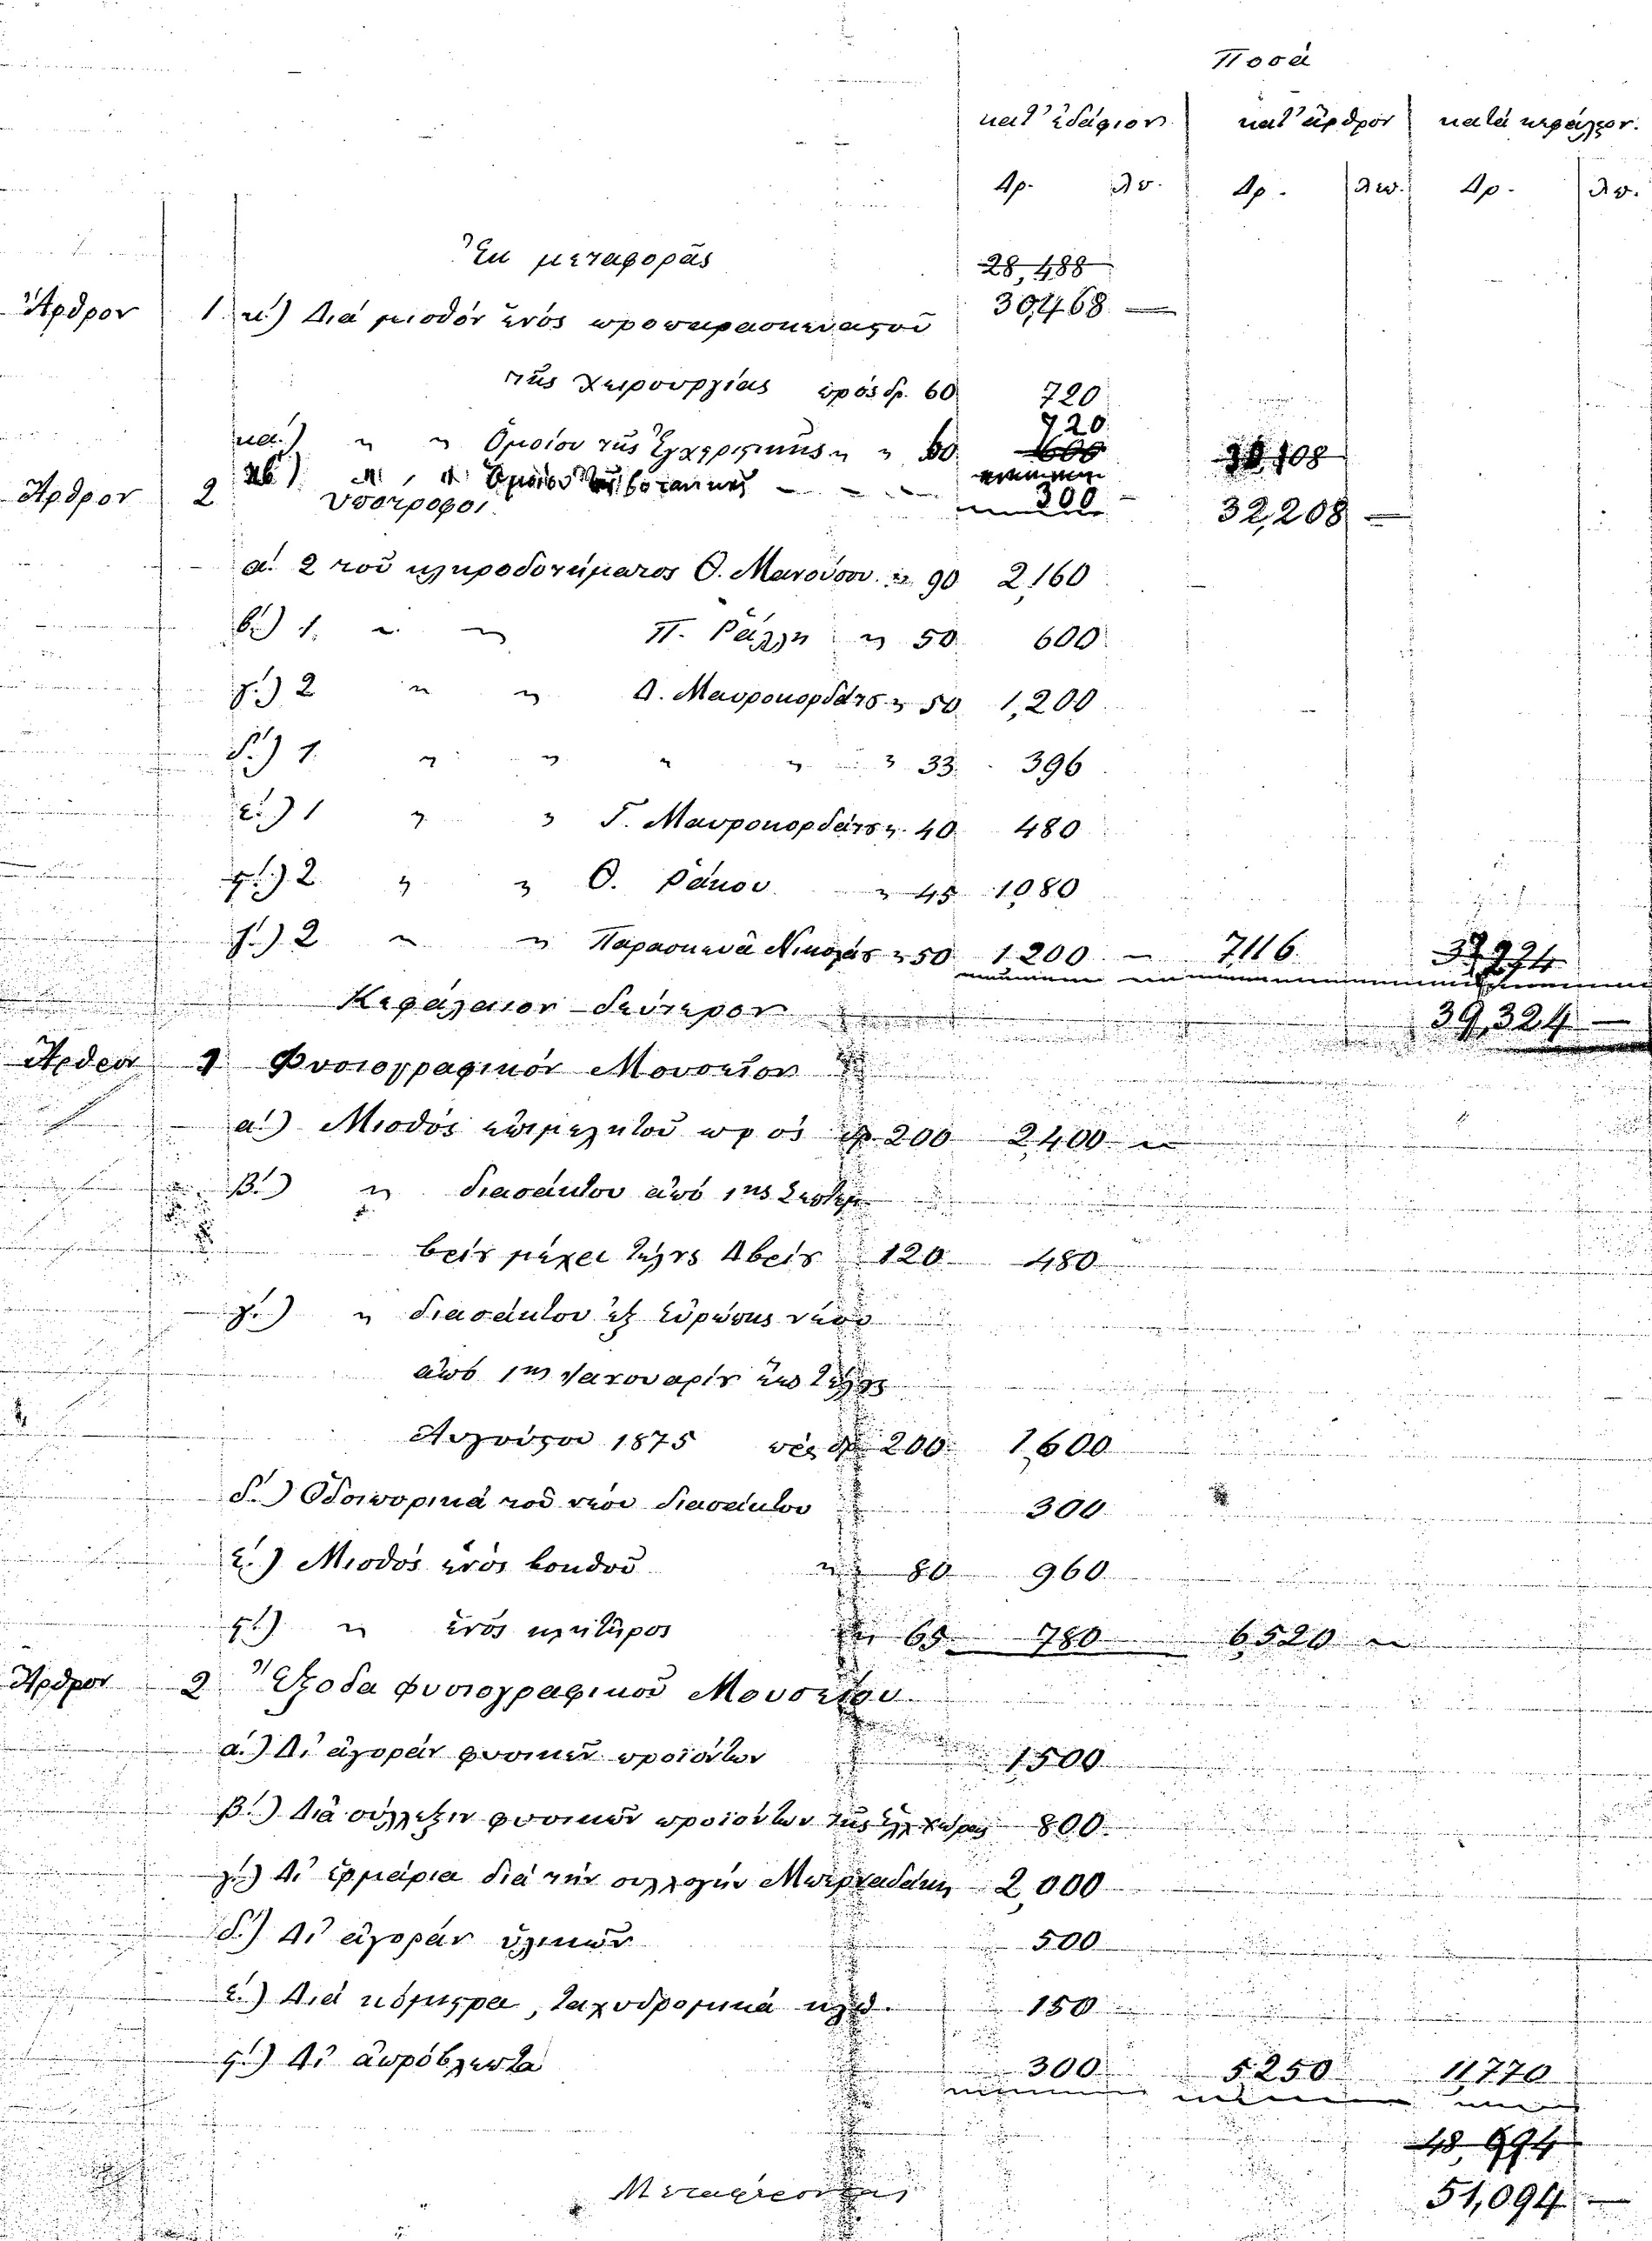 Ποσά
κατ' ἐδάφιον κατ' ἄρθρον κατά κεφάλαιον.
Δρ. λπ. Δρ. λπ. Δρ. λπ.
Ἐκ μεταφορᾶς 28,488
30,468 —
Ἄρθρον 1 κ.) Διά μισθόν ἑνός προπαρασκευαστοῦ
τῆς χειρουργίας πρός δρ. 60 720
720
κα.) " " Ὁμοίου τῆς Ἐγχειρητικῆς " " 60 600
κβ.) " " Ὁμοίου τῆς βοτανικῆς — — — 300 —
Ἄρθρον 2 Ὑπότροφοι 32,208 —
α. 2 τοῦ κληροδοτήματος Θ. Μανούσου " 90 2,160
β.) 1. " " Π. Ράλλη " 50 600
γ.) 2 " " Δ. Μαυροκορδάτου " 50 1,200
δ.) 1. " " " " " 33. 396
ε.) 1 " " Γ. Μαυροκορδάτου " 40 480
ϛ.) 2 " " Θ. Ράκου " 45 1,080
ζ.) 2 " " Παρασκευᾶ Νικολάου " 50 1,200 — 7,116
Κεφάλαιον δεύτερον 39,324 —
Ἄρθρον 1 Φυσιογραφικόν Μουσεῖον
α.) Μισθός ἐπιμελητοῦ πρός δρ 200 2,400 "
β.) " διασάκτου ἀπό 1ης Σεπτεμ
βρίου μέχρι τέλους Δβρίου 120 480
γ.) " διασάκτου ἐξ Εὐρώπης νέου
ἀπό 1ης Ἰανουαρίου ἕως τέλους
Αὐγούστου 1875 πρός δρ 200 1,600
δ.) Ὁδοιπορικά τοῦ νέου διασάκτου 300
ε.) Μισθός ἑνός βοηθοῦ " 80 960
ϛ.) " ἑνός κλητῆρος " 65 780 6,520 "
Ἄρθρον 2 Ἔξοδα φυσιογραφικοῦ Μουσείου
α.) Δι' ἀγοράν φυσικῶν προϊόντων 1,500
β.) Διά σύλλεξιν φυσικῶν προϊόντων τῆς Ἑλλ χώρας 800
γ.) Δι' ἑρμάρια διά τήν συλλογήν 2,000
δ.) Δι' ἀγοράν ὑλικῶν 500
ε.) Διά κόμιστρα, ταχυδρομικά κλπ. 150
ϛ.) Δι' ἀπρόβλεπτα 300 5,250 11,770
48,994
Μεταφέρονται 51,094 —